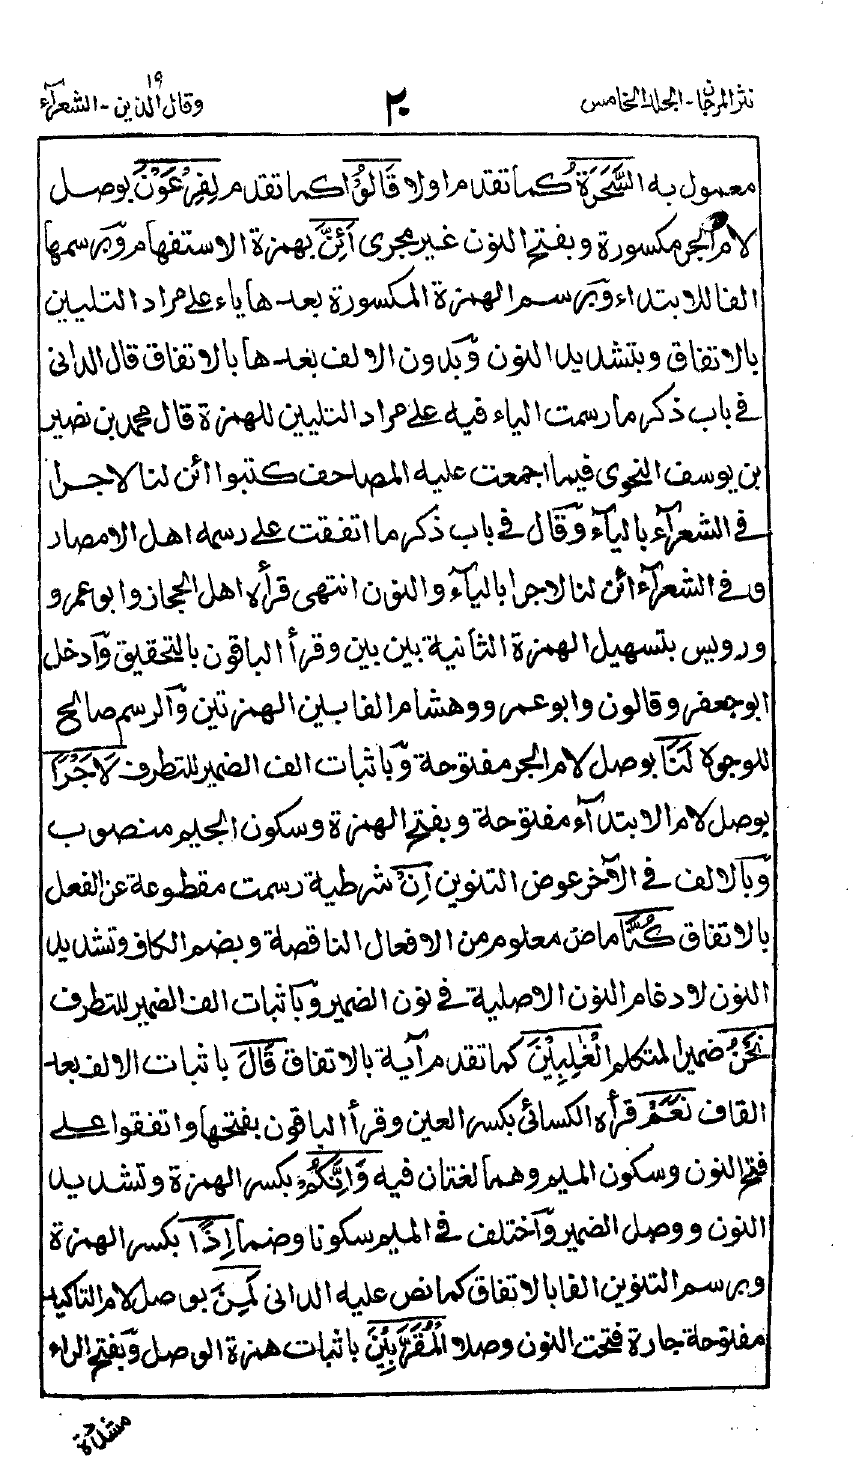 نثر المرجان - المجلد الخامس
٢٠
وقال الذين ١٩ - الشعرآء
معمول به السَّحَرَةُ كما تقدم اولا قَالُوْا كما تقدم لِفِرْعَوْنَ بوصل
لام الجر مكسورة وبفتح النون غير مجرى اَئِنَّ بهمزة الاستفهام وبرسمها
الفا للابتداء وبرسم الهمزة المكسورة بعدها ياء على مراد التليين
بالاتفاق وبتشديد النون وبدون الالف بعدها بالاتفاق قال الدانى
في باب ذكر ما رسمت الياء فيه على مراد التليين للهمزة قال محمد بن نصير
بن يوسف النحوى فيما اجمعت عليه المصاحف كتبوا ائن لنا لاجرا
في الشعرآء بالياء وقال في باب ذكر ما اتفقت على رسمه اهل الامصار
وفي الشعرآء ائن لنا لاجرا بالياء والنون انتهى قرأه اهل الحجاز وابو عمرو و
ورويس بتسهيل الهمزة الثانية بين بين وقرأ الباقون بالتحقيق وادخل
ابو جعفر وقالون وابو عمرو وهشام الفا بين الهمزتين والرسم صالح
للوجوه لَنَا بوصل لام الجر مفتوحة وباثبات الف الضمير للتطرف لَاَجْرًا
بوصل لام الابتدآء مفتوحة وبفتح الهمزة وسكون الجيم منصوب
وبالالف في الآخر عوض التنوين اِنْ شرطية رسمت مقطوعة عن الفعل
بالاتفاق كُنَّا ماض معلوم من الافعال الناقصة وبضم الكاف وتشديد
النون لادغام النون الاصلية في نون الضمير وباثبات الف الضمير للتطرف
نَحْنُ ضمير المتكلم الْغٰلِبِيْنَ كما تقدم آية بالاتفاق قَالَ باثبات الالف بعد
القاف نَعَمْ قرأه الكسائى بكسر العين وقرأ الباقون بفتحها واتفقوا على
فتح النون وسكون الميم وهما لغتان فيه وَاِنَّكُمْ بكسر الهمزة وتشديد
النون ووصل الضمير واختلف في الميم سكونا وضما اِذًا بكسر الهمزة
وبرسم التنوين الفا بالاتفاق كما نص عليه الدانى لَمِنَ بوصل لام التاكيد
مفتوحة جارة فتحت النون وصلا الْمُقَرَّبِيْنَ باثبات همزة الوصل وبفتح الراء
مشددة